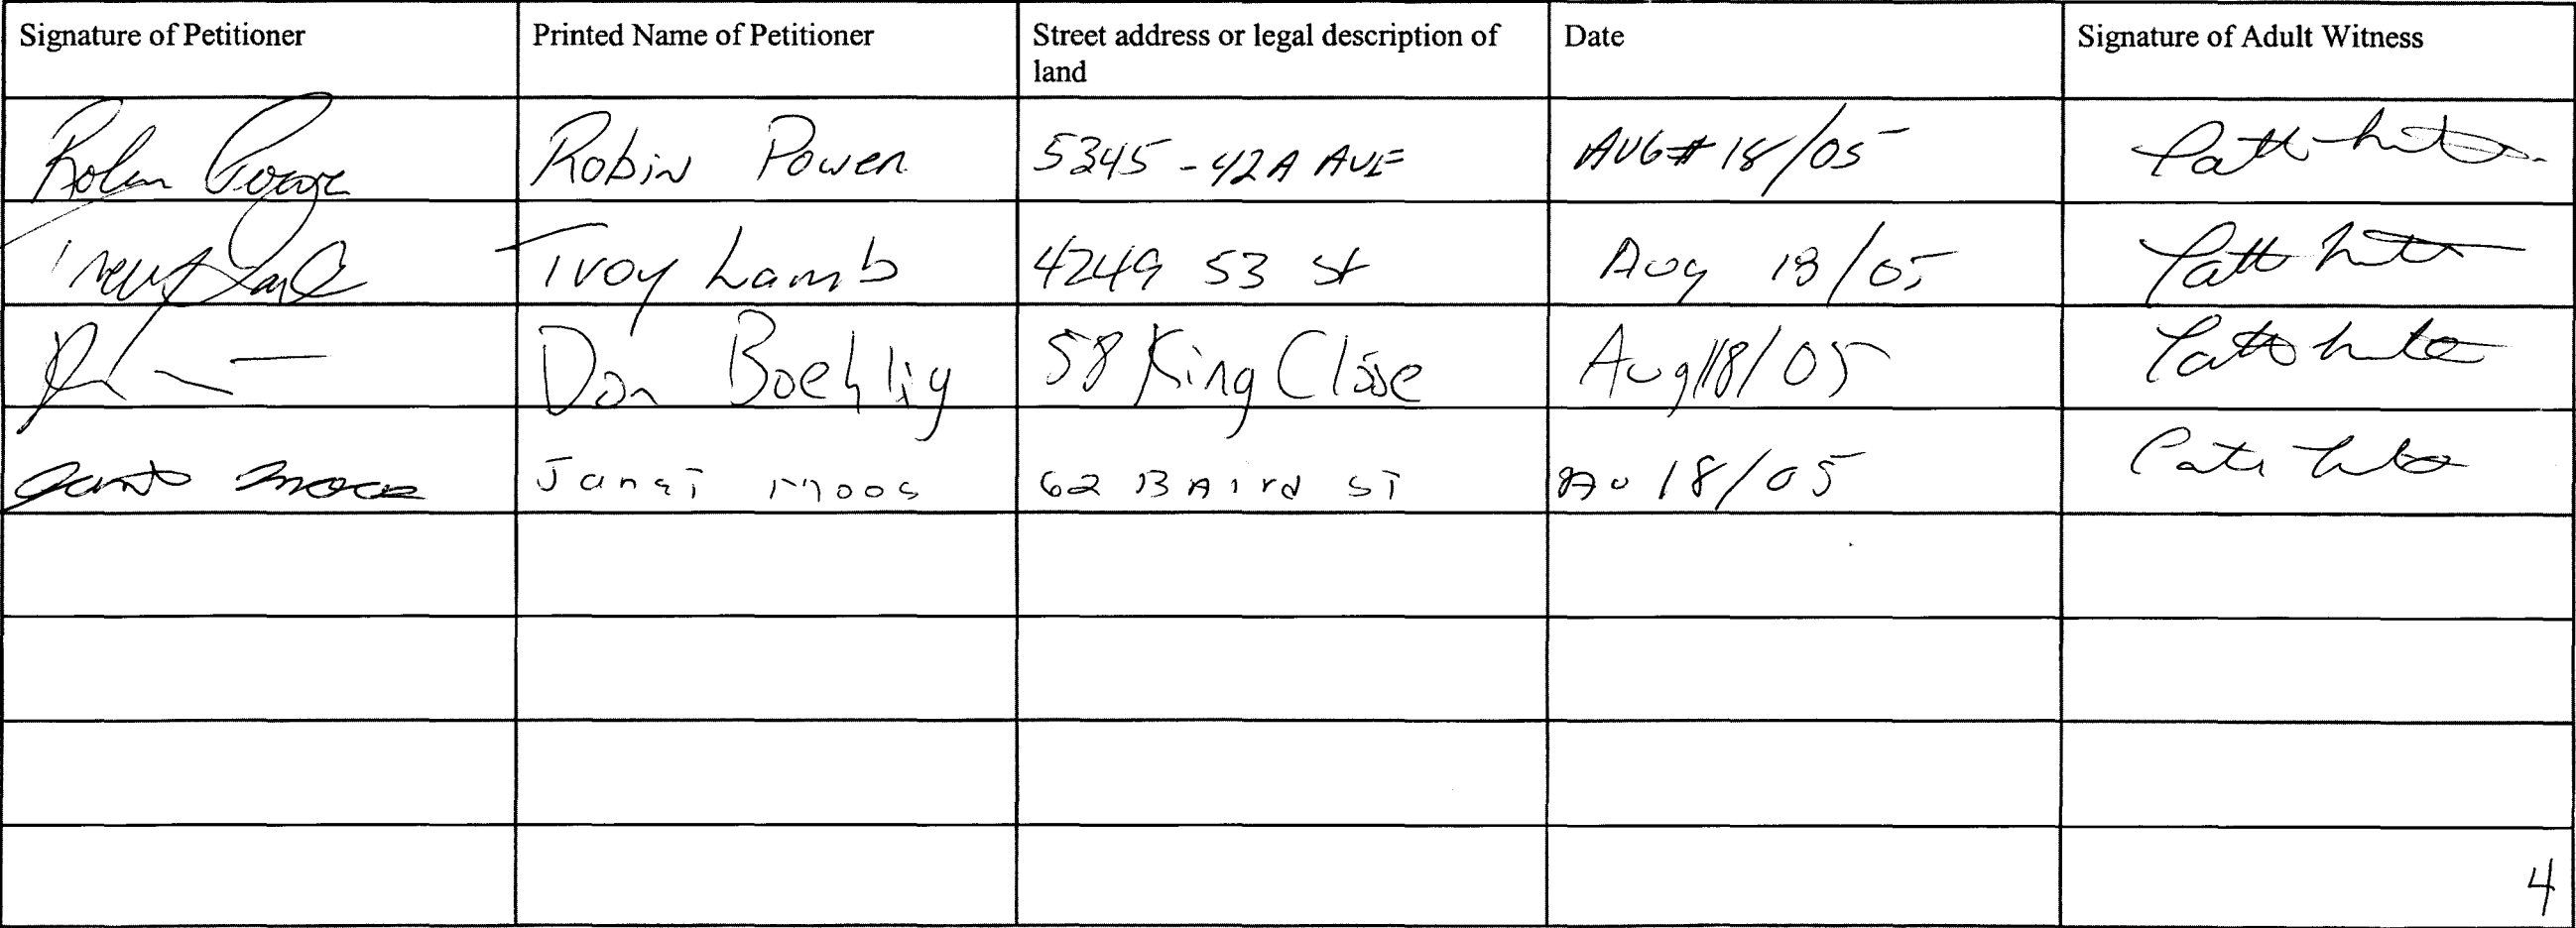 Signature of Petitioner Printed Name of Petitioner Street address or legal description of land Date Signature of Adult Witness
Robin Power Robin Power 5345 - 42A AVE AUG 18/05
Troy Lamb 4249 53 St Aug 18/05
Don Boehlig 58 King Close Aug 18/05
Janet Moos 62 BAird ST Au 18/05
4